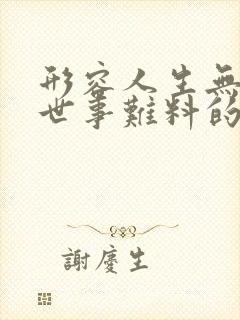 形容人生無
世事難料的
謝慶生